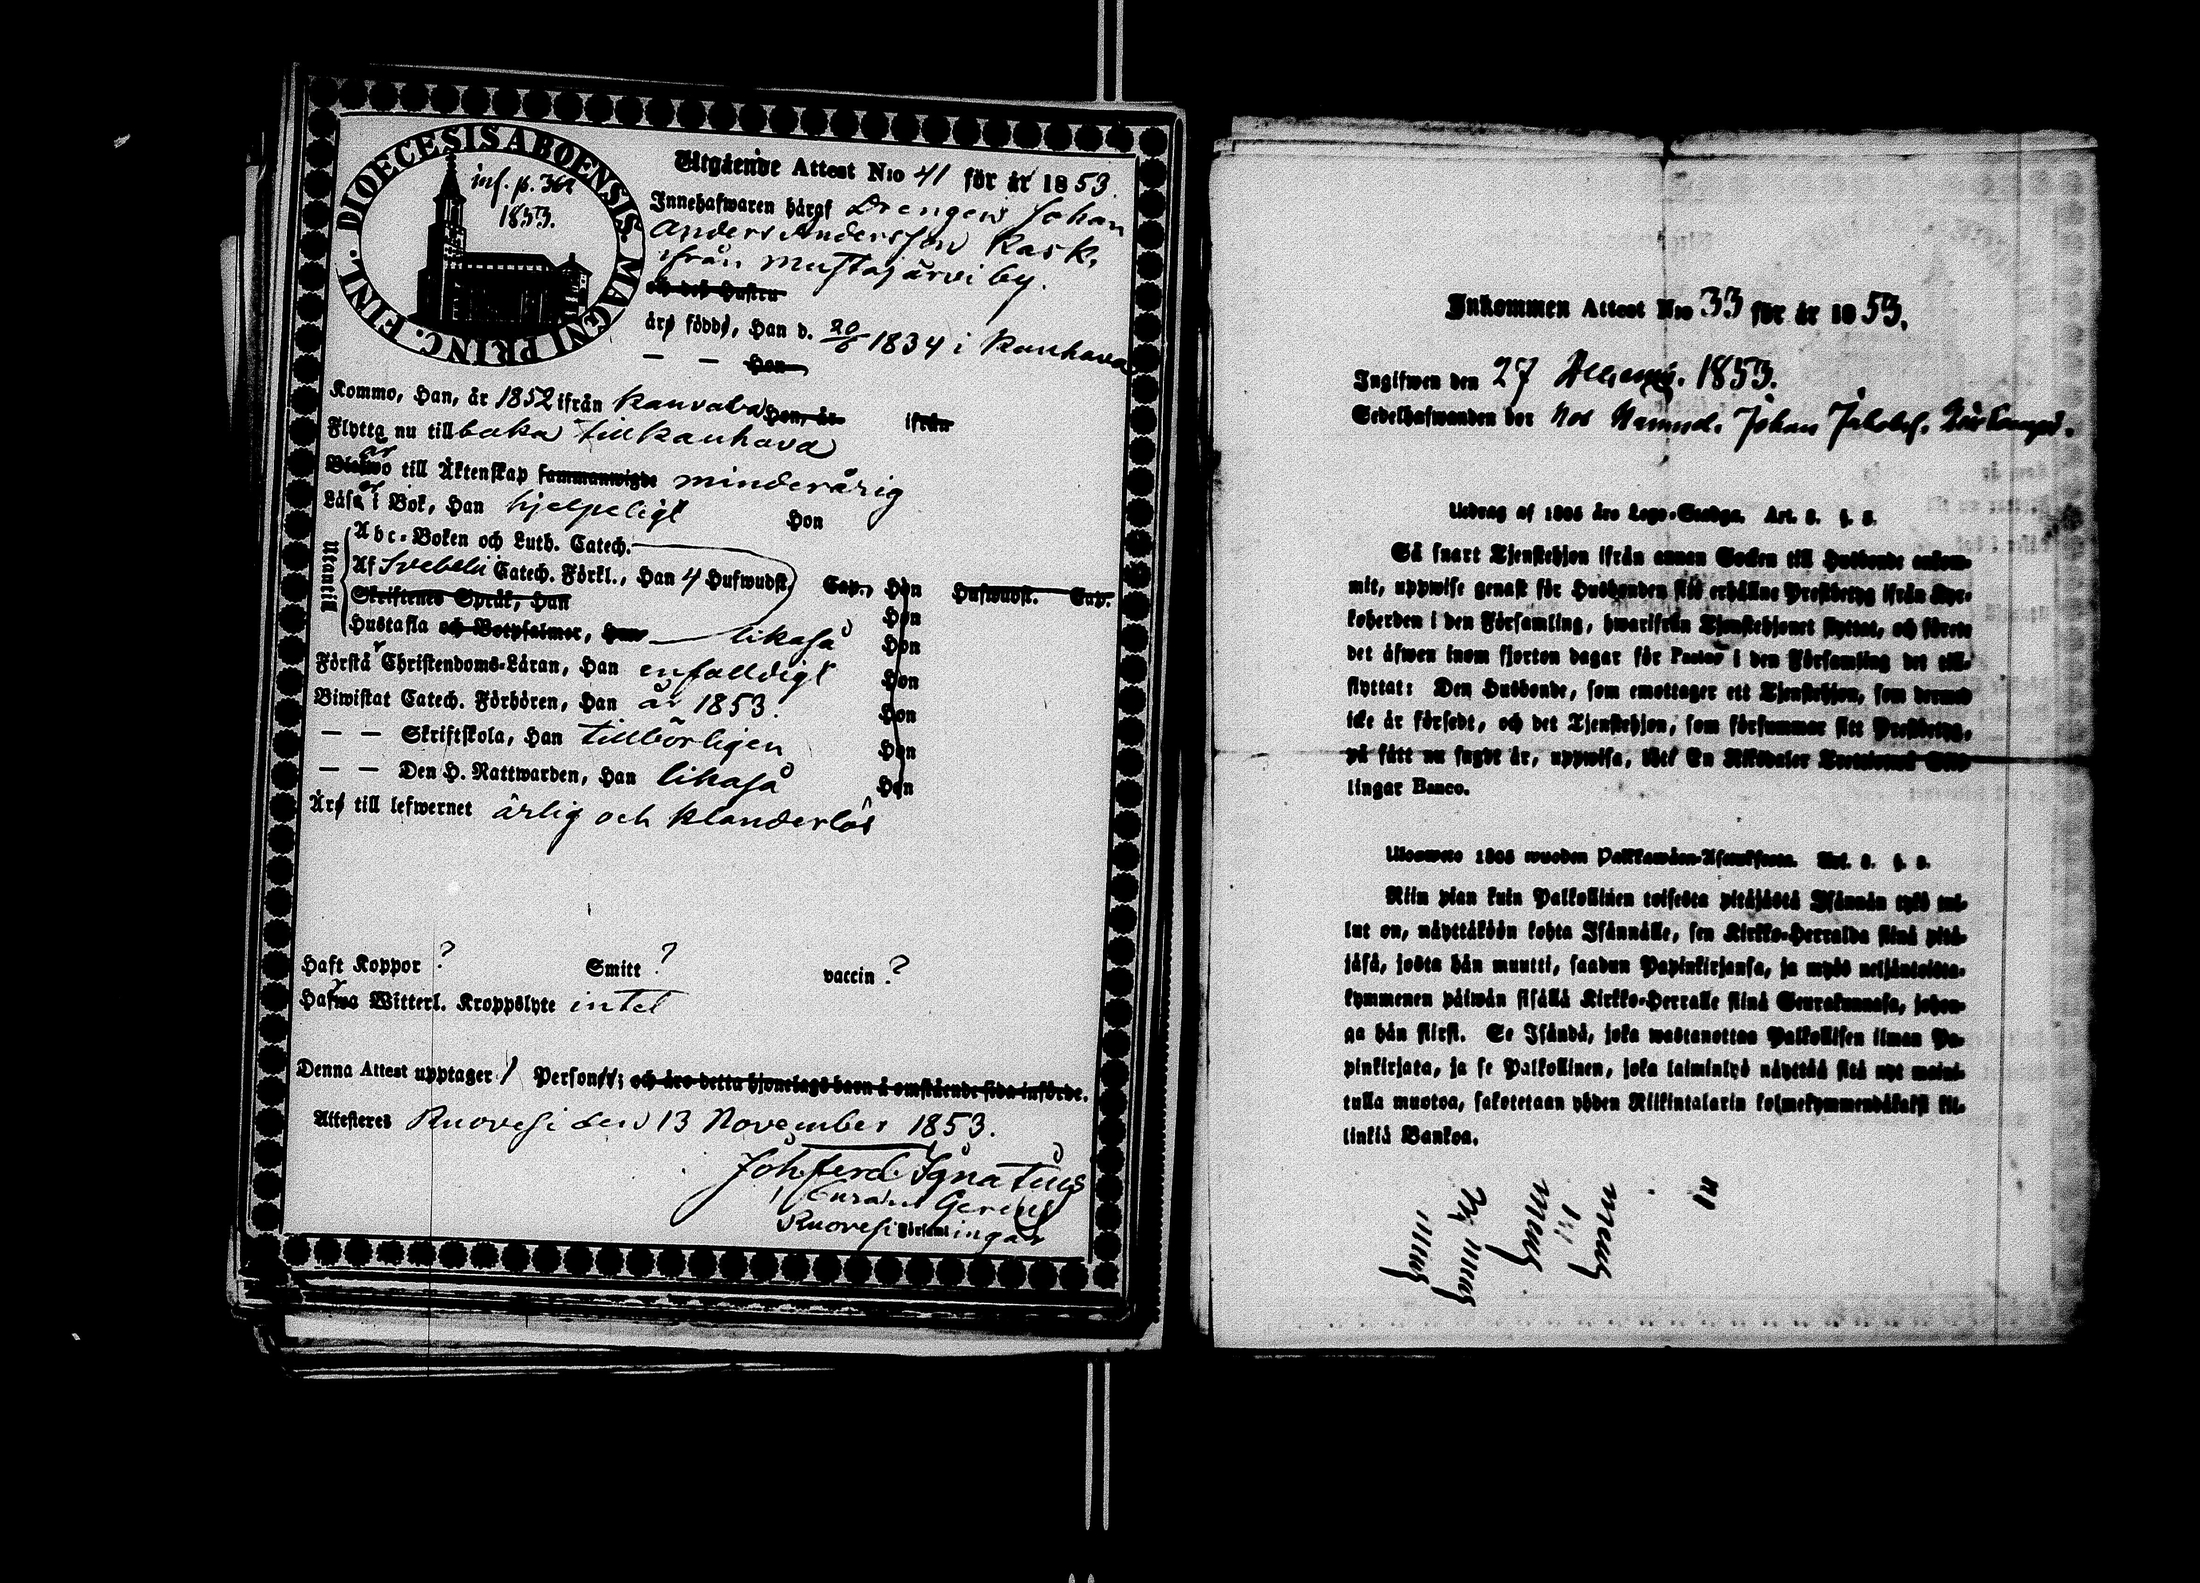 DIOECESIS ABOENSIS. MAGNI PRINC. FINL.
inf. p. 362
1853.
Utgående Attest No 41 för år 1853.
Innehafwaren häraf Drengen Johan
Anders Andersson Kask,
ifrån Mustajärvi by.
och des Hustru
äro födde, Han d. 20/6 1834 i Kauhava
— — Hon
Kommo, Han, år 1852 ifrån Kauvaha Hon, år ifrån
Flytta nu till baka till Kauhava
är
till Äktenskap sammanwigde minderårig
Läsa i Bok, Han hjelpeligt Hon
Utantill
Abc-Boken och Luth. Catech.
Af Svebelii Catech. Förkl., Han 4 Hufwudst. Cap., Hon Hufwudst. Cap.
Skriftenes Språk, Han Hon
Hustafla och Botpsalmer, Han likaså Hon
Förstå Christendoms-Läran, Han enfalldigt Hon
Biwistat Catech. Förhören, Han år 1853. Hon
— — Skriftskola, Han tillbörligen Hon
— — Den H. Nattwarden, Han likaså Hon
Äro till lefwernet ärlig och klanderlös
Haft Koppor ? Smitt ? vaccin ?
Hafwa Witterl. Kroppslyte intet
Denna Attest upptager 1 Person; och äro detta hjonelags barn å omstående sida införde.
Attesteras Ruovesi den 13 November 1853.
Joh. Ferd. Ignatius
Curam Gerens
Ruovesi Församlingar
Inkommen Attest No 33 för år 1853.
Ingifwen den 27 1853.
Sedelhafwanden bor hos Johan
Utdrag af 1805 års Lego-Stadga. Art. 3. §. 3.
Så snart Tjenstehjon ifrån annan Socken till Husbonde ankom-
mit, uppwise genast för Husbonden sitt erhållne Prestbetyg ifrån Kyr-
koherden i den Församling, hwarifrån Tjenstehjonet flyttat, och förete
det äfwen inom fjorton dagar för Pastor i den Församling det till-
flyttat: Den Husbonde, som emottager ett Tjenstehjon, som dermed
icke är försedt, och det Tjenstehjon, som försummar sitt Prestbetyg,
på sätt nu sagdt är, uppwisa, böte En Riksdaler Trettiotvå Skil-
lingar Banco.
Ulosweto 1805 wuoden Palkkawäen-Asetuksesta. Art. 3. §. 3.
Niin pian kuin Palkollinen toisesta pitäjästä Isännän tykö tul-
lut on, näyttäköön kohta Isännälle, sen Kirkko-Herralda siinä pitä-
jäsä, josta hän muutti, saadun Papinkirjansa, ja myös neljäntoista-
kymmenen päiwän sisällä Kirkko-Herralle siinä Seurakunnasa, johon-
ga hän siirsi. Se Isändä, joka wastanottaa Palkollisen ilman Pa-
pinkirjata, ja se Palkollinen, joka laiminlyö näyttää sitä nyt maini-
tulla muotoa, sakotetaan yhden Riikintalarin kolmekymmendäkaksi kil-
linkiä Bankoa.